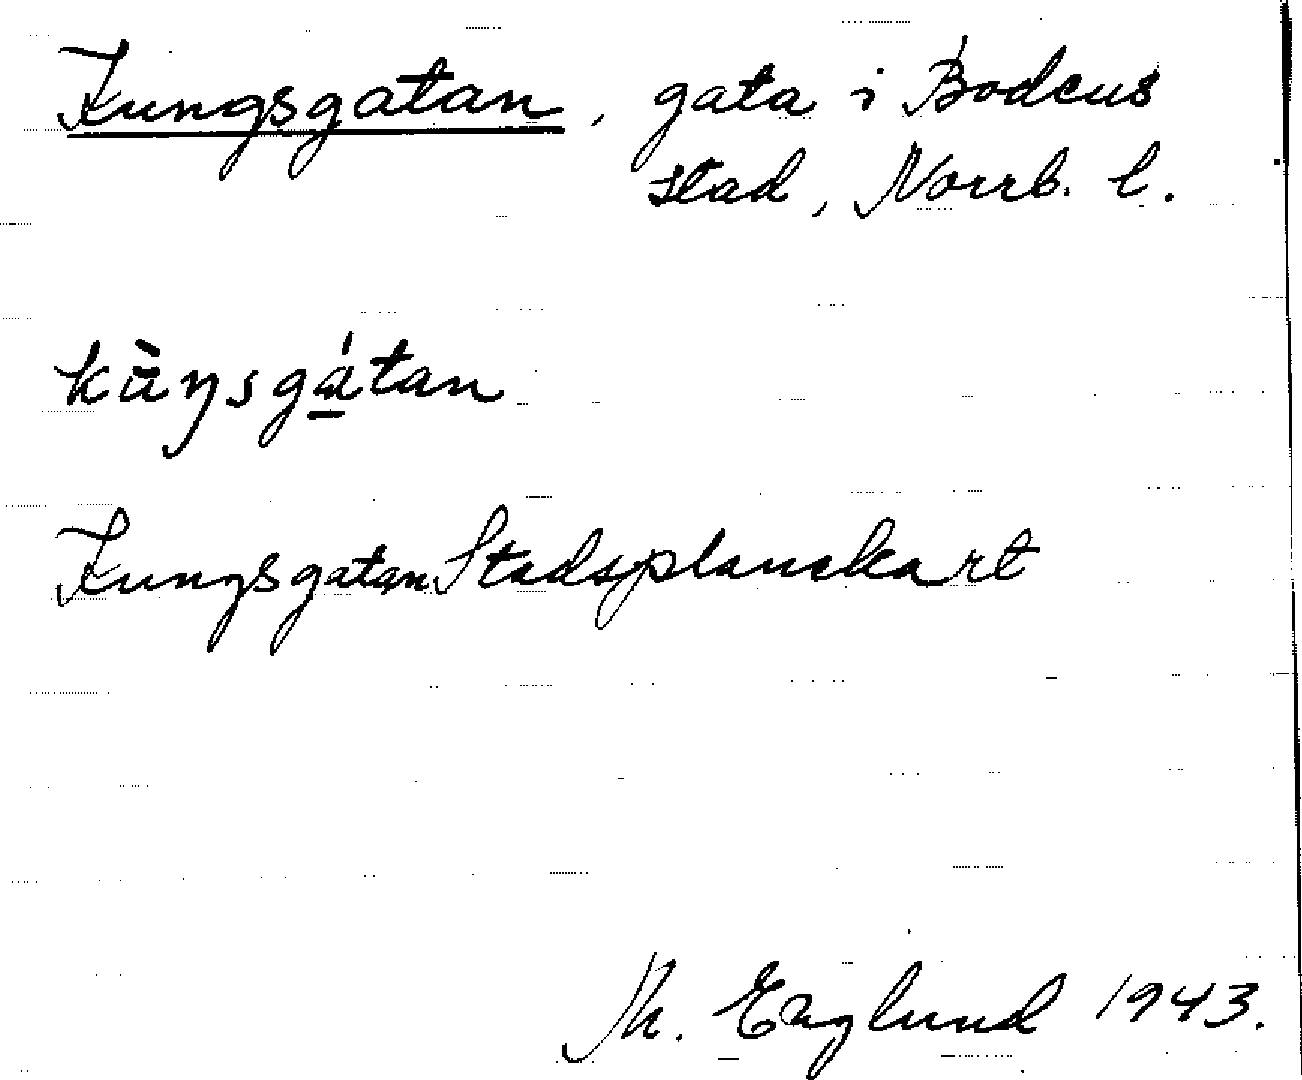 Kungsgatan, gata i Bodens
stad, Norrb. l.
kùŋsgátan
Kungsgatan Stadsplanekart
M. Englund 1943.